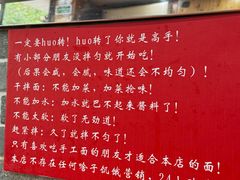 一定要huo转！huo转了你就是高手！
有小部分朋友没拌匀就开始吃！
（后果会咸，会咸，味道还会不均匀）！
干拌面：不能加菜，加菜抢味！
不能加水：加水就巴不起来酱料了！
不能太软：软了无劲道！
起紧拌：久了就拌不匀了！
只有喜欢吃手工面的朋友才适合本店的面！
本店不存在任何啥子饥饿营销，24小